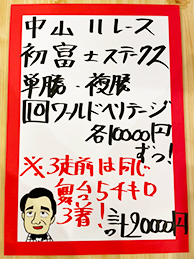 中山11レース
初富士ステークス
単勝・複勝
10ワールドヘリテージ
各10000円
ずつ!
※3走前は同じ
舞台54キロ
3着!
計20000円